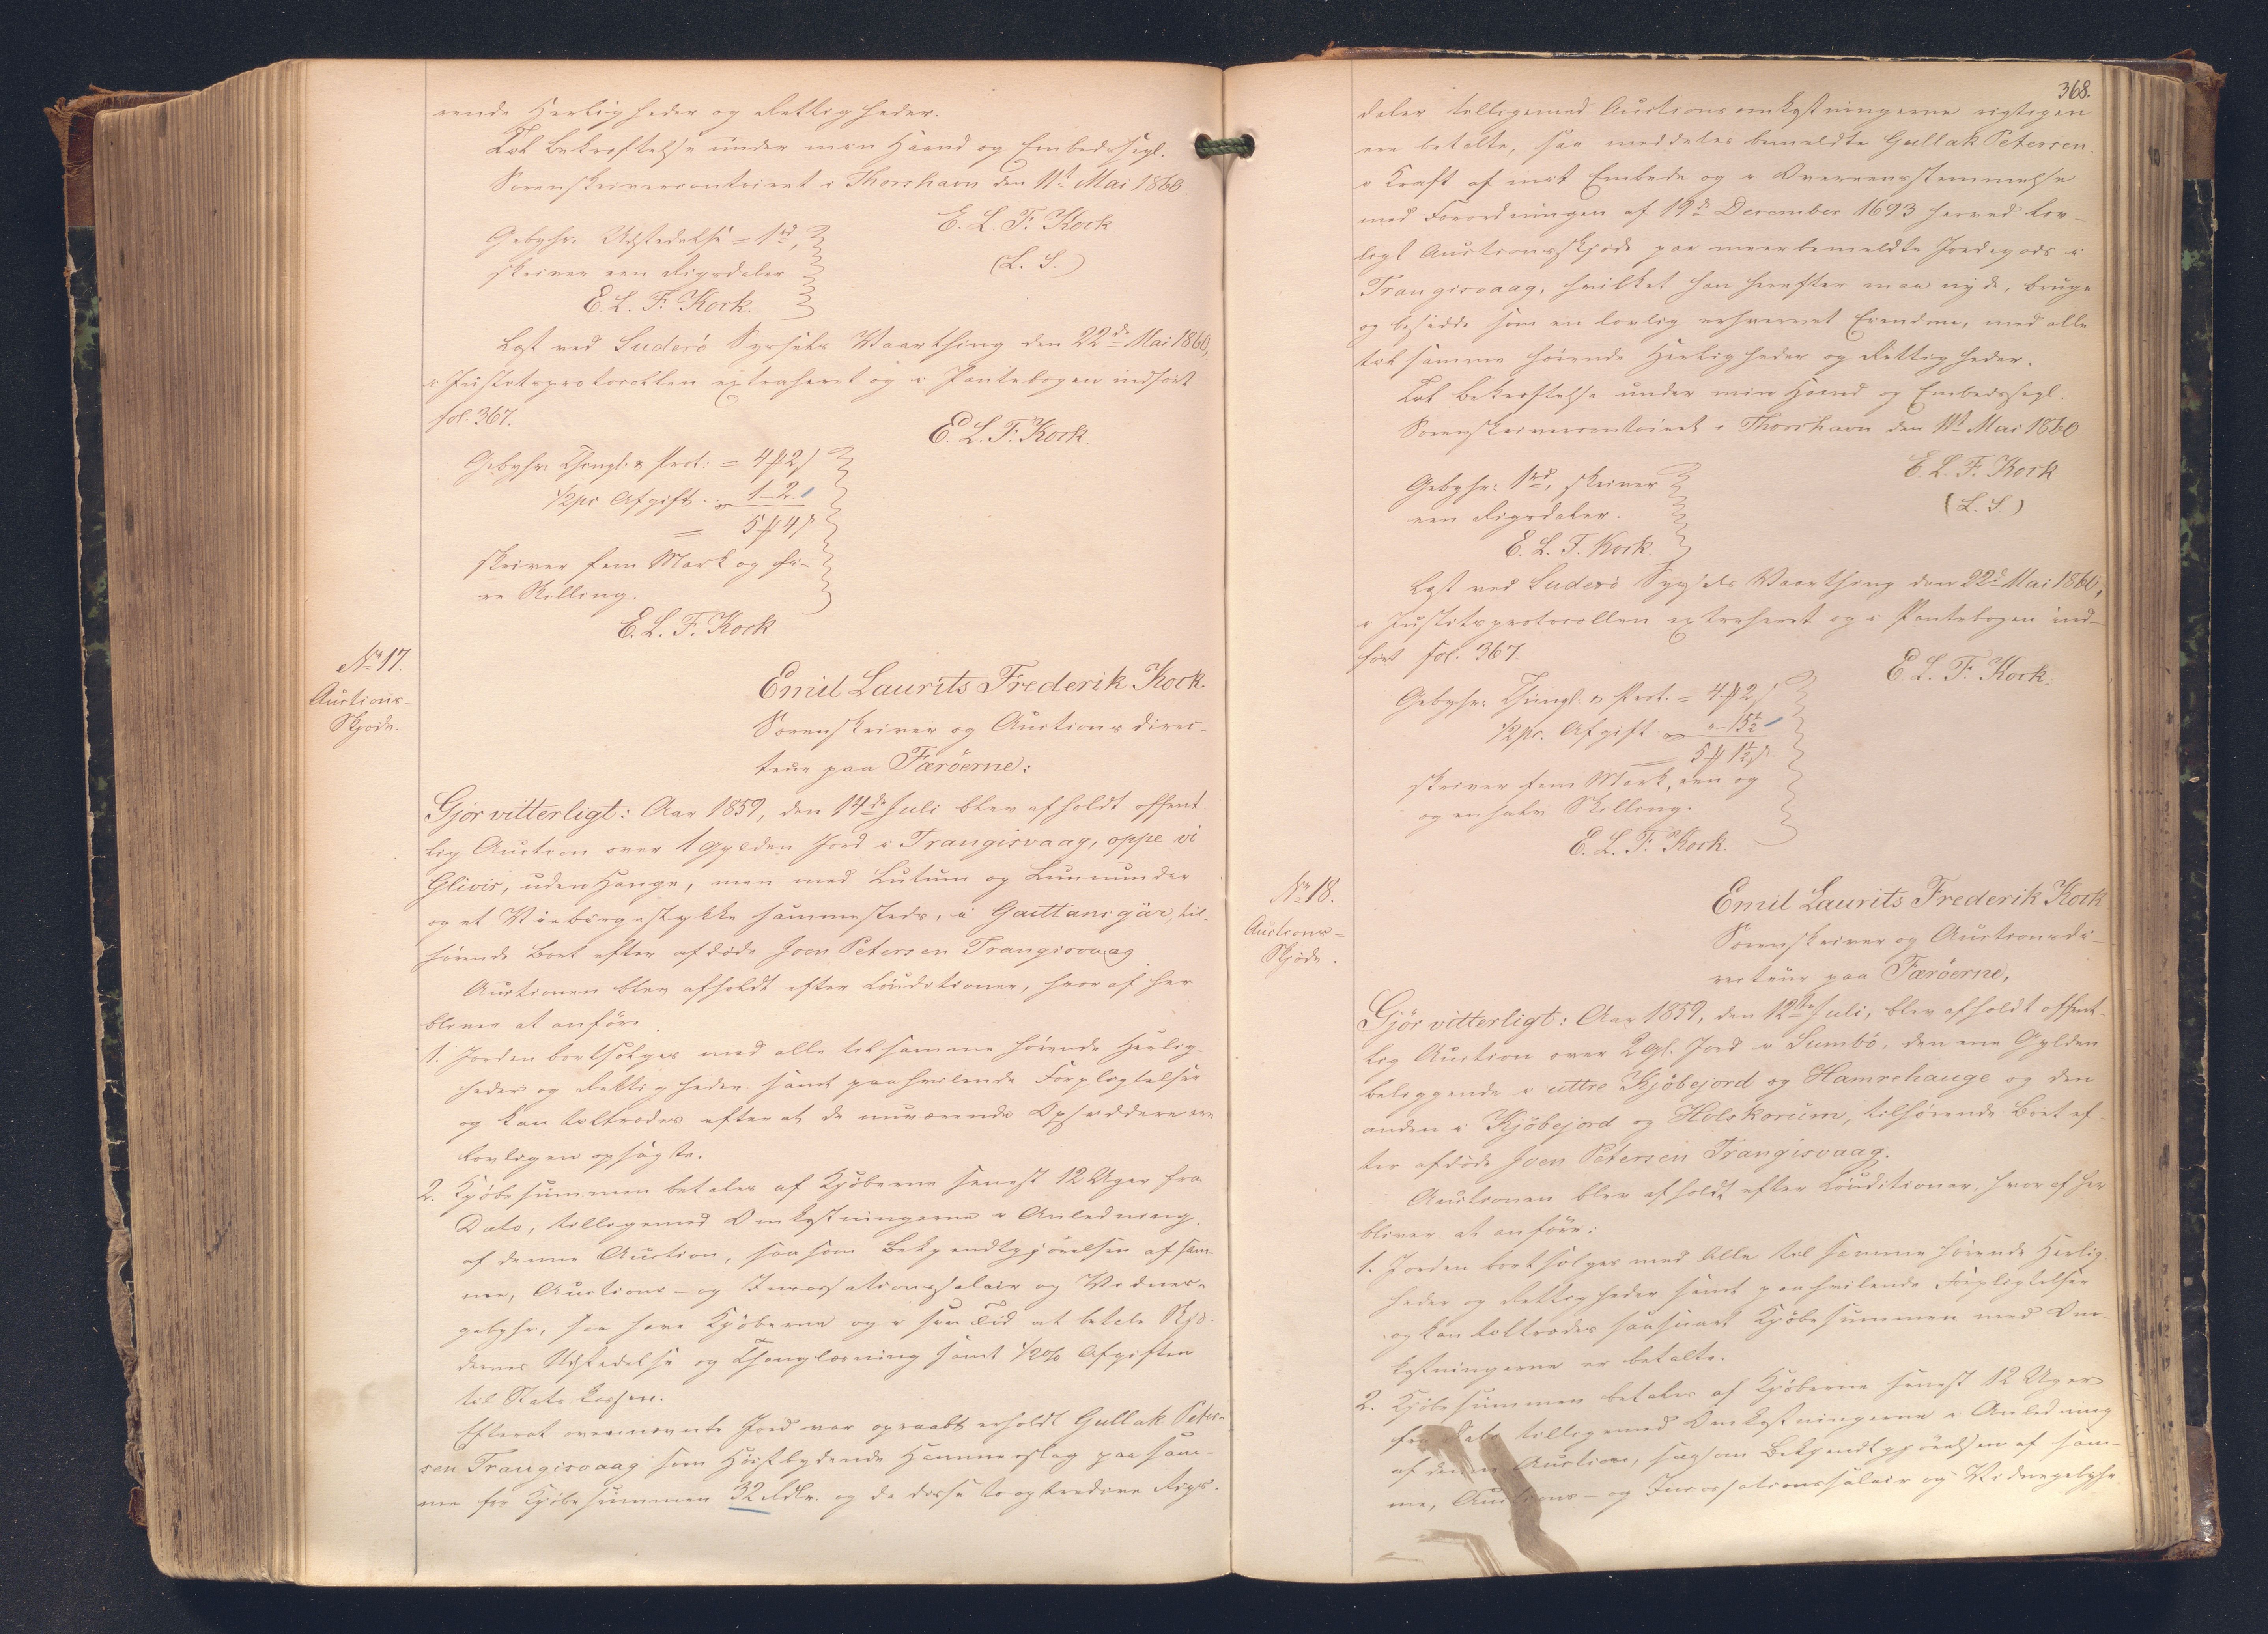 rende Herligheder og Rettigheder.
Til Bekræftelse under min Haand og Embedssegl.
Sorenskrivercontoiret i Thorshavn den 11t Mai 1860.
E. L. F. Kock.
(L. S.)
Gebyhr: Udstedelse = 1rd,
skriver een Rigsdaler
E. L. F. Kock.
Læst ved Suderö Syssels Vaarthing den 22de Mai 1860,
i Justitsprotocollen extraheret og i Pantebogen indfört
fol. 367.
E. L. F. Kock.
Gebyhr: Thingl. & Prot: = 4 ₥ 2 s
1/2 pc Afgift .. 1 - 2.
= 5 ₥ 4 s
skriver fem Mark og fi-
re Skilling.
E. L. F. Kock.
No 17.
Auctions-
Skjøde.
Emil Laurits Frederik Kock.
Sorenskriver og Auctionsdirec-
teur paa Færöerne:
Gjör vitterligt: Aar 1859, den 14de Juli blev afholdt offent-
lig Auction over 1 Gylden Jord i Trangisvaag, oppe vi
Glivis, uden Hauge, men med Lutum og Lunnunder
og et Viebörgestykke sammesteds, i Gaittansgär, til-
hörende Boet efter afdöde Joen Petersen Trangisvaag
Auctionen blev afholdt efter Conditioner, hvoraf her
bliver at anföre
1. Jorden bortsælges med alle til samme hörende Herlig-
heder og Rettigheder samt paahvilende Forpligtelser
og kan tiltrædes efterat de nuværende Opsiddere ere
lovligen opsagte.
2. Kjöbesummen betales af Kjöberne senest 12 Uger fra
Dato, tilligemed Omkostningerne i Anledning
af denne Auction, saasom Bekjendtgjörelsen af sam-
me, Auctions- og Incassationssalair og Vidne-
gebyhr, saa have Kjöberne og i sin Tid at betale Skjö-
dernes Udstedelse og Thinglæsning samt 1/2 % Afgiften
til Statskassen.
Efterat ovennævnte Jord var opraabt erholdt Gullak Peter-
sen Trangisvaag som Höistbydende Hammerslag paa sam-
me for Kjöbesummen 32 Rdlr. og da disse to og tredive Rigs-
368.
daler tilligemed Auctionsomkostningerne rigtigen
ere betalte, saa meddeles bemeldte Gullak Petersen
i Kraft af mit Embede og i Overeensstemmelse
med Forordningen af 19de December 1693 herved lov-
ligt Auctionsskjöde paa meerbemeldte Jordegods i
Trangisvaag, hvilket han herefter maa nyde, bruge
og besidde som en lovlig erhvervet Eiendom, med alle
til samme hörende Herligheder og Rettigheder.
Til Bekræftelse under min Haand og Embedssegl.
Sorenskrivercontoiret i Thorshavn den 11t Mai 1860
E. L. F. Kock
(L. S.)
Gebyhr: 1rd, skriver
een Rigsdaler.
E. L. F. Kock.
Læst ved Suderö Syssels Vaarthing den 22d Mai 1860,
i Justitsprotocollen extraheret og i Pantebogen ind-
fört fol. 367.
E. L. F. Kock.
Gebyhr: Thingl. & Prot. = 4 ₥ 2 s
1/2 pc. Afgift - 15 1/2
5 ₥ 1 1/2 s
skriver fem Mark, een og
og en halv Skilling.
E. L. F. Kock.
No 18.
Auctions-
Skjöde.
Emil Laurits Frederik Kock
Sorenskriver og Auctionsdi-
recteur paa Færöerne,
Gjör vitterligt: Aar 1859, den 12te Juli, blev afholdt offent-
lig Auction over 2 gl. Jord i Sumbö, den ene Gylden
beliggende i uttre Kjöbejord og Hamrehauge og den
anden i Kjöbejord og Holskorum, tilhörende Boet ef-
ter afdöde Joen Petersen Trangisvaag.
Auctionen blev afholdt efter Conditioner, hvoraf her
bliver at anföre:
1. Jorden bortsælges med alle til samme hörende Herlig-
heder og Rettigheder samt paahvilende Forpligtelser
og kan tiltrædes saasnart Kjöbesummen med Om-
kostningerne er betalte.
2. Kjöbesummen betales af Kjöberne senest 12 Uger
fra Dato tilligemed Omkostningerne i Anledning
af denne Auction, saasom Bekjendtgjörelsen af sam-
me, Auctions- og Incassationssalair og Vidnegebyhr